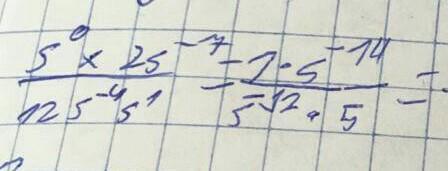 5⁰ × 25⁻⁷ / 125⁻⁴ 5¹ = 1 · 5⁻¹⁴ / 5⁻¹² · 5 =